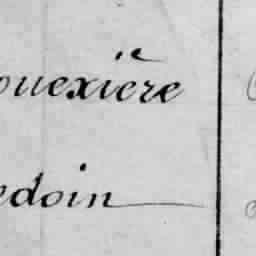 ouexière
edoin